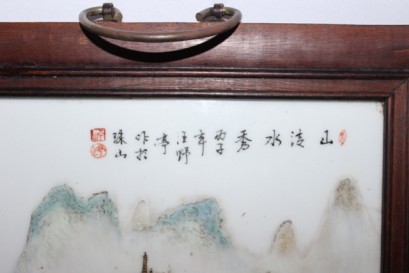 山清水秀
丙子
年
汪野
亭
作於
珠山